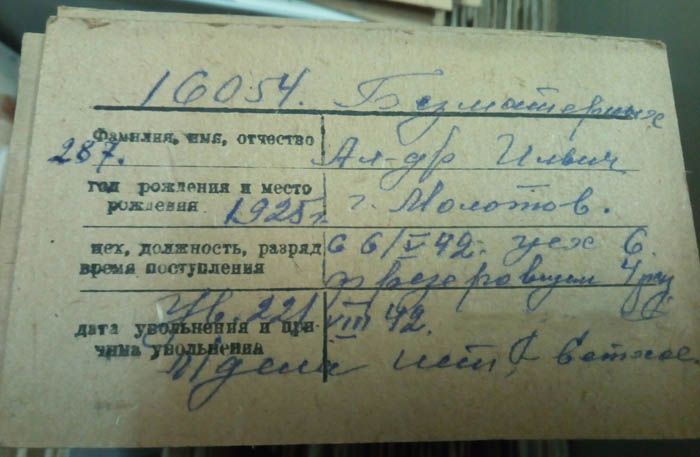 16054. Безматерных
Фамилия, имя, отчество Ал-др Ильич
287.
год рождения и место
рождения 1925 г. г. Молотов.
цех, должность, разряд с 6/V 42. цех 6.
время поступления фрезеровщик 4 раз
Ув. 22/VIII 42.
дата увольнения и при-
чина увольнения